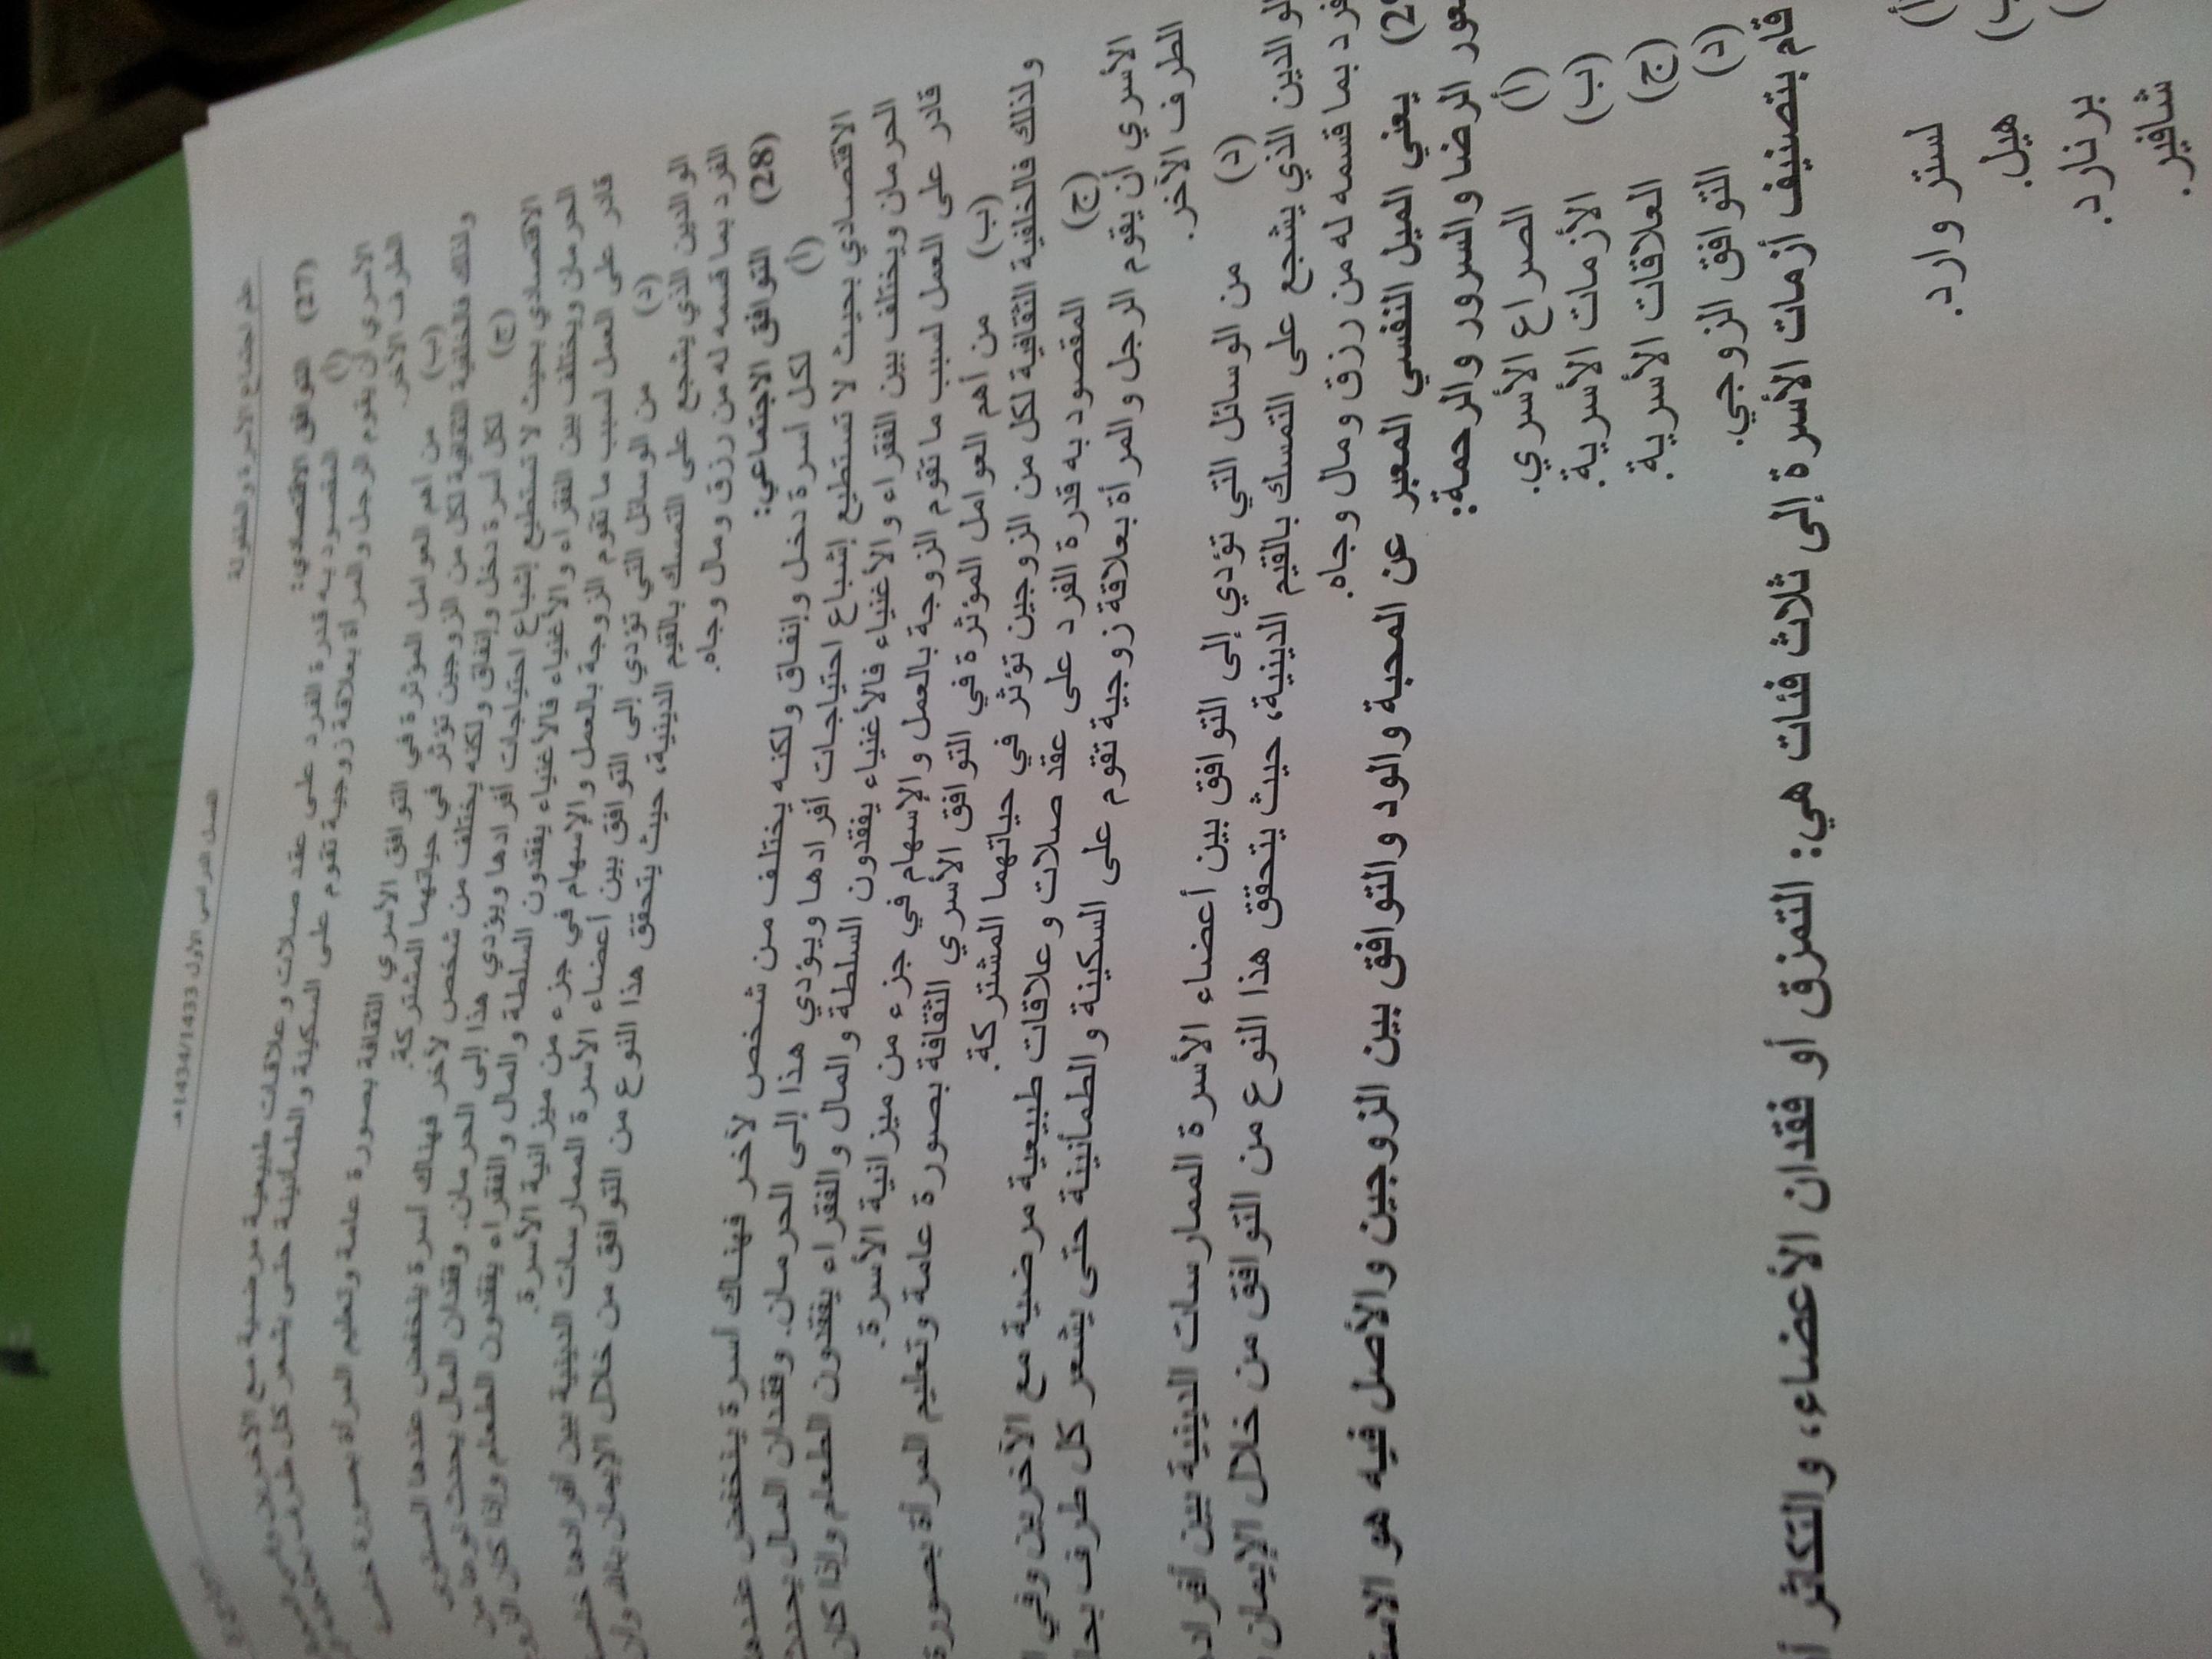 علم اجتماع الأسرة والطفولة
الفصل الدراسي الأول 1434/1433هـ
(27) التوافق الاقتصادي:
(أ) المقصود به قدرة الفرد على عقد صلات وعلاقات طبيعية مرضية مع الآخرين وفي
الأسري أن يقوم الرجل والمرأة بعلاقة زوجية تقوم على السكينة والطمأنينة حتى يشعر كل طرف
الطرف الآخر.
(ب) من أهم العوامل المؤثرة في التوافق الأسري الثقافة بصورة عامة وتعليم المرأة بصورة
ولذلك فالخلفية الثقافية لكل من الزوجين تؤثر في حياتهما المشتركة.
(ج) لكل أسرة دخل وإنفاق ولكنه يختلف من شخص لآخر فهناك أسرة ينخفض عندها المستوى
الاقتصادي بحيث لا تستطيع إشباع احتياجات أفرادها ويؤدي هذا إلى الحرمان. وفقدان المال يحدث
الحرمان ويختلف بين الفقراء والأغنياء فالأغنياء يفقدون السلطة والمال والفقراء يفقدون الطعام وإذا كان
قادر على العمل لسبب ما تقوم الزوجة بالعمل والإسهام في جزء من ميزانية الأسرة.
(د) من الوسائل التي تؤدي إلى التوافق بين أعضاء الأسرة الممارسات الدينية بين أفرادها
الوالدين الذي يشجع على التمسك بالقيم الدينية، حيث يتحقق هذا النوع من التوافق من خلال الإيمان بالله
الفرد بما قسمه له من رزق ومال وجاه.
(28) التوافق الاجتماعي:
(أ) لكل أسرة دخل وإنفاق ولكنه يختلف من شخص لآخر فهناك أسرة ينخفض عندها
الاقتصادي بحيث لا تستطيع إشباع احتياجات أفرادها ويؤدي هذا إلى الحرمان. وفقدان المال يحدث
الحرمان ويختلف بين الفقراء والأغنياء فالأغنياء يفقدون السلطة والمال والفقراء يفقدون الطعام وإذا كان
قادر على العمل لسبب ما تقوم الزوجة بالعمل والإسهام في جزء من ميزانية الأسرة.
(ب) من أهم العوامل المؤثرة في التوافق الأسري الثقافة بصورة عامة وتعليم المرأة بصورة
ولذلك فالخلفية الثقافية لكل من الزوجين تؤثر في حياتهما المشتركة.
(ج) المقصود به قدرة الفرد على عقد صلات وعلاقات طبيعية مرضية مع الآخرين وفي
الأسري أن يقوم الرجل والمرأة بعلاقة زوجية تقوم على السكينة والطمأنينة حتى يشعر كل طرف
الطرف الآخر.
(د) من الوسائل التي تؤدي إلى التوافق بين أعضاء الأسرة الممارسات الدينية بين
الوالدين الذي يشجع على التمسك بالقيم الدينية، حيث يتحقق هذا النوع من التوافق من خلال الإيمان
بما قسمه له من رزق ومال وجاه.
يعني الميل النفسي المعبر عن المحبة والود والتوافق بين الزوجين والأصل فيه هو
الرضا والسرور والرحمة:
(أ) الصراع الأسري.
(ب) الأزمات الأسرية.
(ج) العلاقات الأسرية.
(د) التوافق الزوجي.
قام بتصنيف أزمات الأسرة إلى ثلاث فئات هي: التمزق أو فقدان الأعضاء، والتكاثر
لستر وارد.
هيل.
برنارد.
شافير.